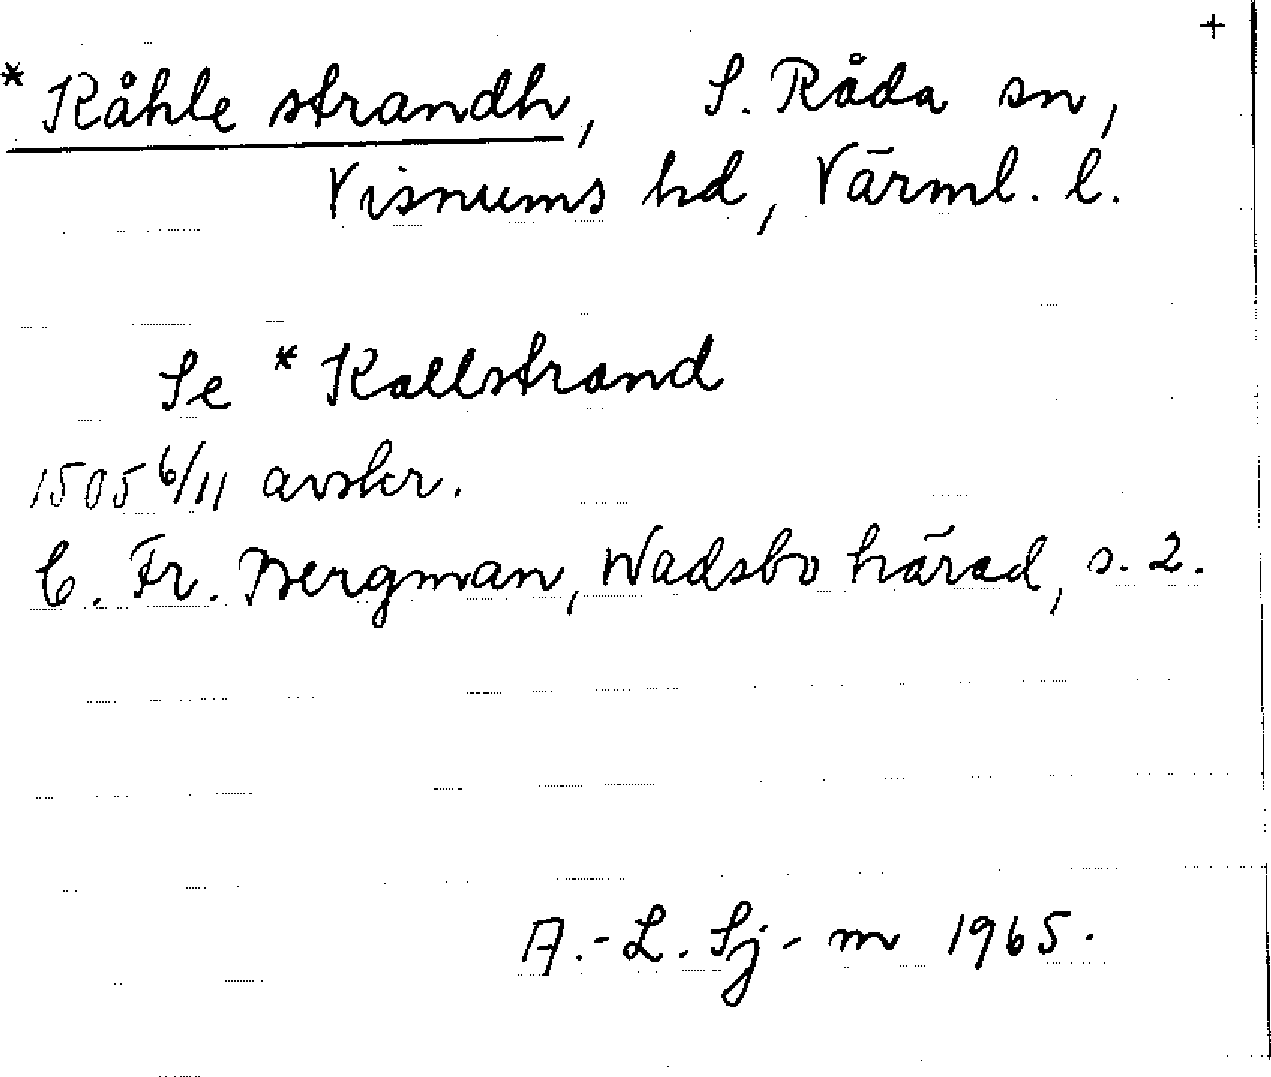 +
*Kåhle strandh, S. Råda sn,
Visnums hd, Värml. l.
Se *Kallstrand
1505 6/11 avskr.
C. Fr. Bergman, Wadsbo härad, s. 2.
A.-L. Sj-m 1965.